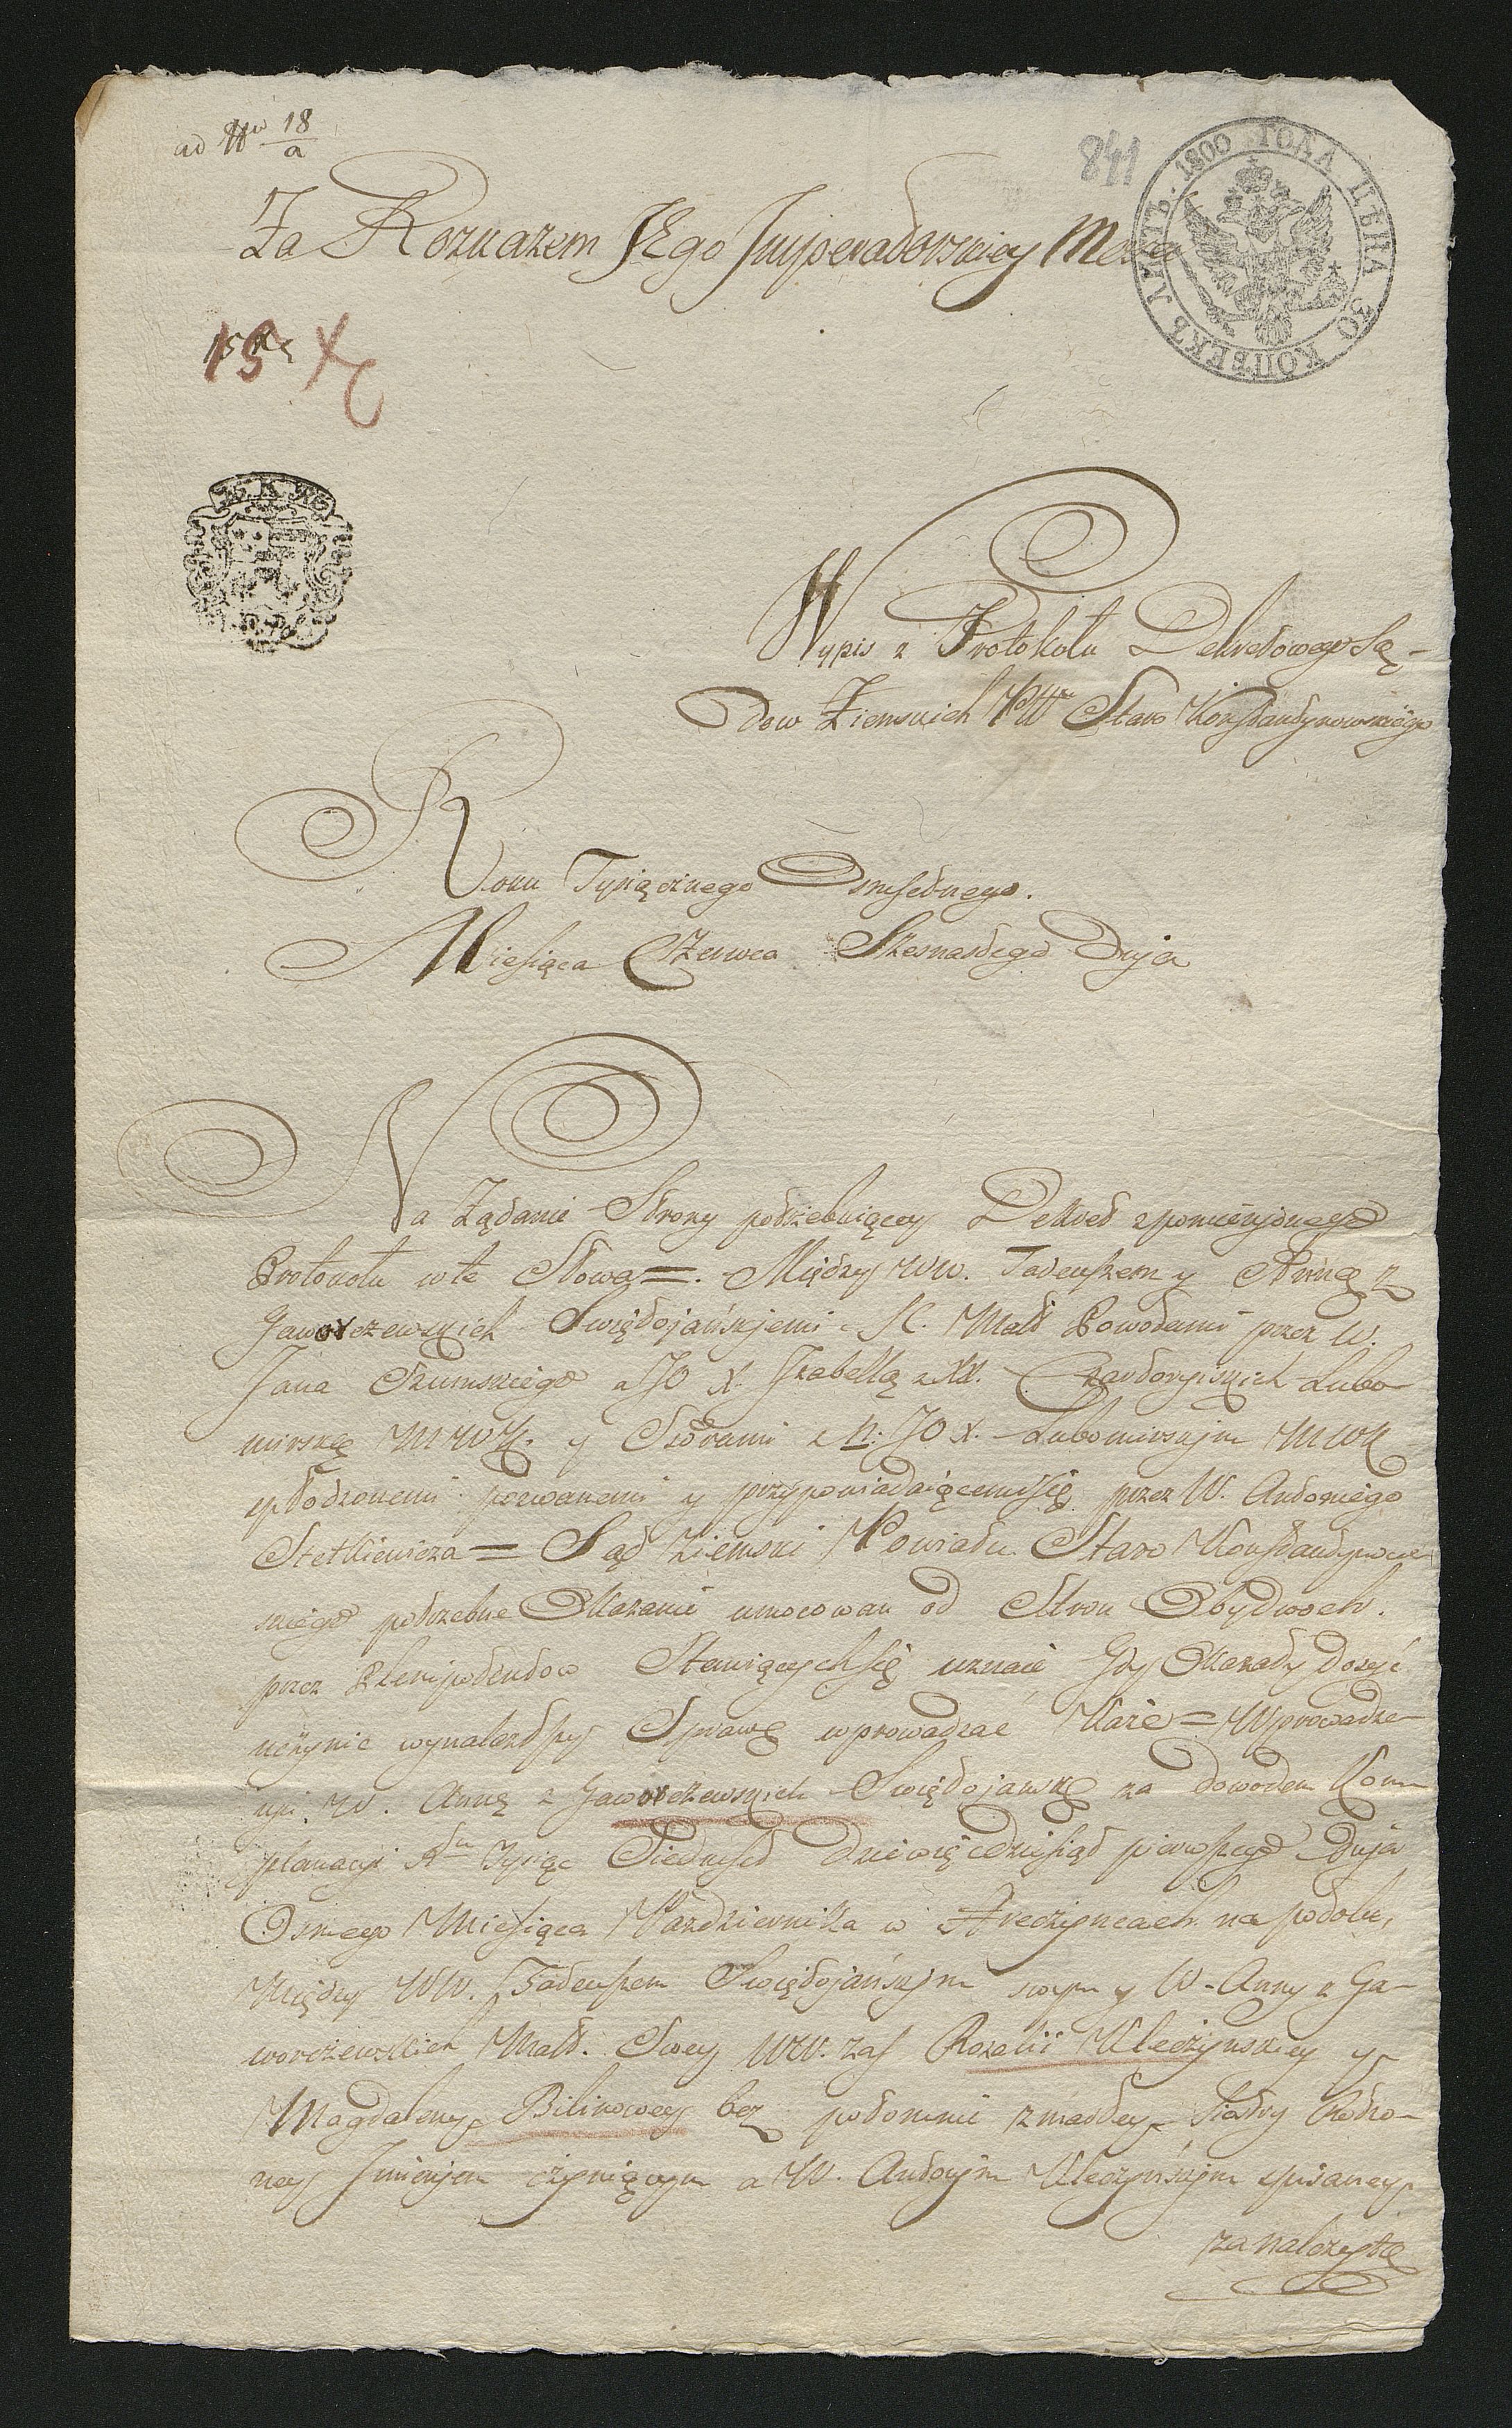 ad Nro 18/a
841
1800 ГОДА ЦѢНА 30 КОПѢЕКЪ ЛИСТЪ.
Za Rozkazem JEgo Imperadorskiey Mosci
15 Xc
15 X
Wypis z Protokołu Dekretowego Są-
dow Ziemskich Pttu Staro Konstantynowskiego
Roku Tysiącznego Osmsetnego.
Miesiąca Czerwca Szesnastego Dnja
Na Żądanie Strony potrzebuiącey Dekret zpomienjonego
Protokołu w te Słowa =. Między WW. Tadeuszem y Anną z
Gaworczewskich Swiętojańskjemi M. Małż Powodami przez W.
Jana Szumskiego a JO X. Jzabellą z XX. Czartoryiskich Lubo
mirską MWK. y Córami z n: JO X. Lubomirskjm MWK
spłodzonemi pozwanemi y przypowiadaiącemisię przez W. Antoniego
Stetkiewicza = Sąd Ziemski Powiatu Staro Konstantynow
skiego potrzebne Okazanie umocowan od Stron Obydwoch.
przez Plenipotentow Stawiących się uznaie Gdy Okazały dosyć
uczynie wynalazłszy Sprawę wprowadzać Każe = Wprowadze
nji W. Annę z Gaworczewskich Swiętojanską za dowodem Kom
planacyi Rku Tysiąc Siedmset dziewięcdziesiąt pierwszego Dnja
Osmego Miesiąca Pazdziernika w Hreczyncach na podolu,
Między WW. Tadeuszem Swiętojańskjm swym y W. Anny z Ga-
worczewskich Małż. Swey WW. zaś Rozalii Kleczynskiey y
Magdaleny Bilinowey bez potomnie zmarłey Siostry Rodzo-
ney Jmienjem czyniącym a W. Antonjm Kleczyńskjm spisaney
za należytą